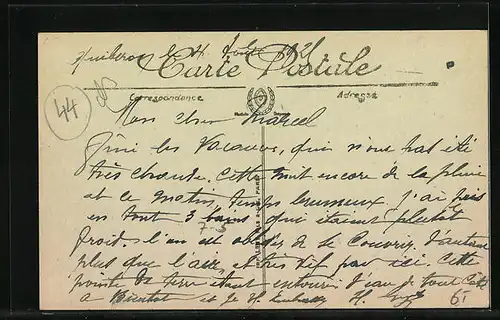 Quiberon le 4 Août 192
Carte Postale
Correspondance Adresse
44
Mon cher Marcel
Fini les Vacances, qui n'ont pas été
très chaude, cette nuit encore de la pluie
et ce matin, temps brumeux, j'ai pris
en tout 3 bains qui étaient plutôt
7-5
froids. l'on est obligé de se couvrir, d'autant
plus que l'air, est très vif par ici cette
pointe de terre étant entourée d'eau de tout côté
a Bientôt et je H.
61